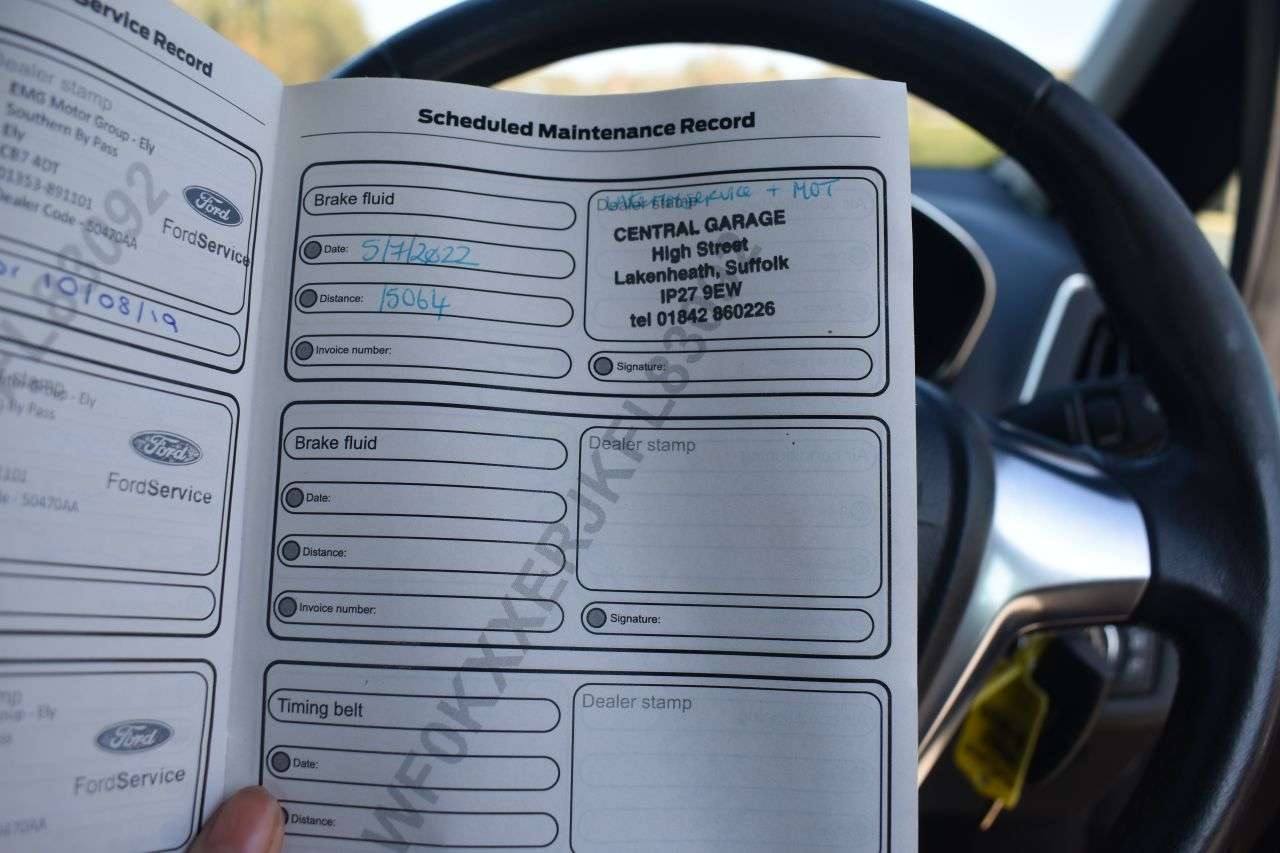 Service Record
Dealer stamp
EMG Motor Group - Ely
Southern By Pass
Ely
CB7 4DT
01353-891101
Dealer Code - 50470AA
Ford
FordService
10/08/19
- Ely
By Pass
- 50470AA
Ford
FordService
- Ely
Ford
FordService
Scheduled Maintenance Record
Brake fluid
Date: 5/7/2022
Distance: 15064
Invoice number:
Dealer stamp
SERVICE + MOT
CENTRAL GARAGE
High Street
Lakenheath, Suffolk
IP27 9EW
tel 01842 860226
Signature:
Brake fluid
Date:
Distance:
Invoice number:
Dealer stamp
Signature:
Timing belt
Date:
Distance:
Dealer stamp